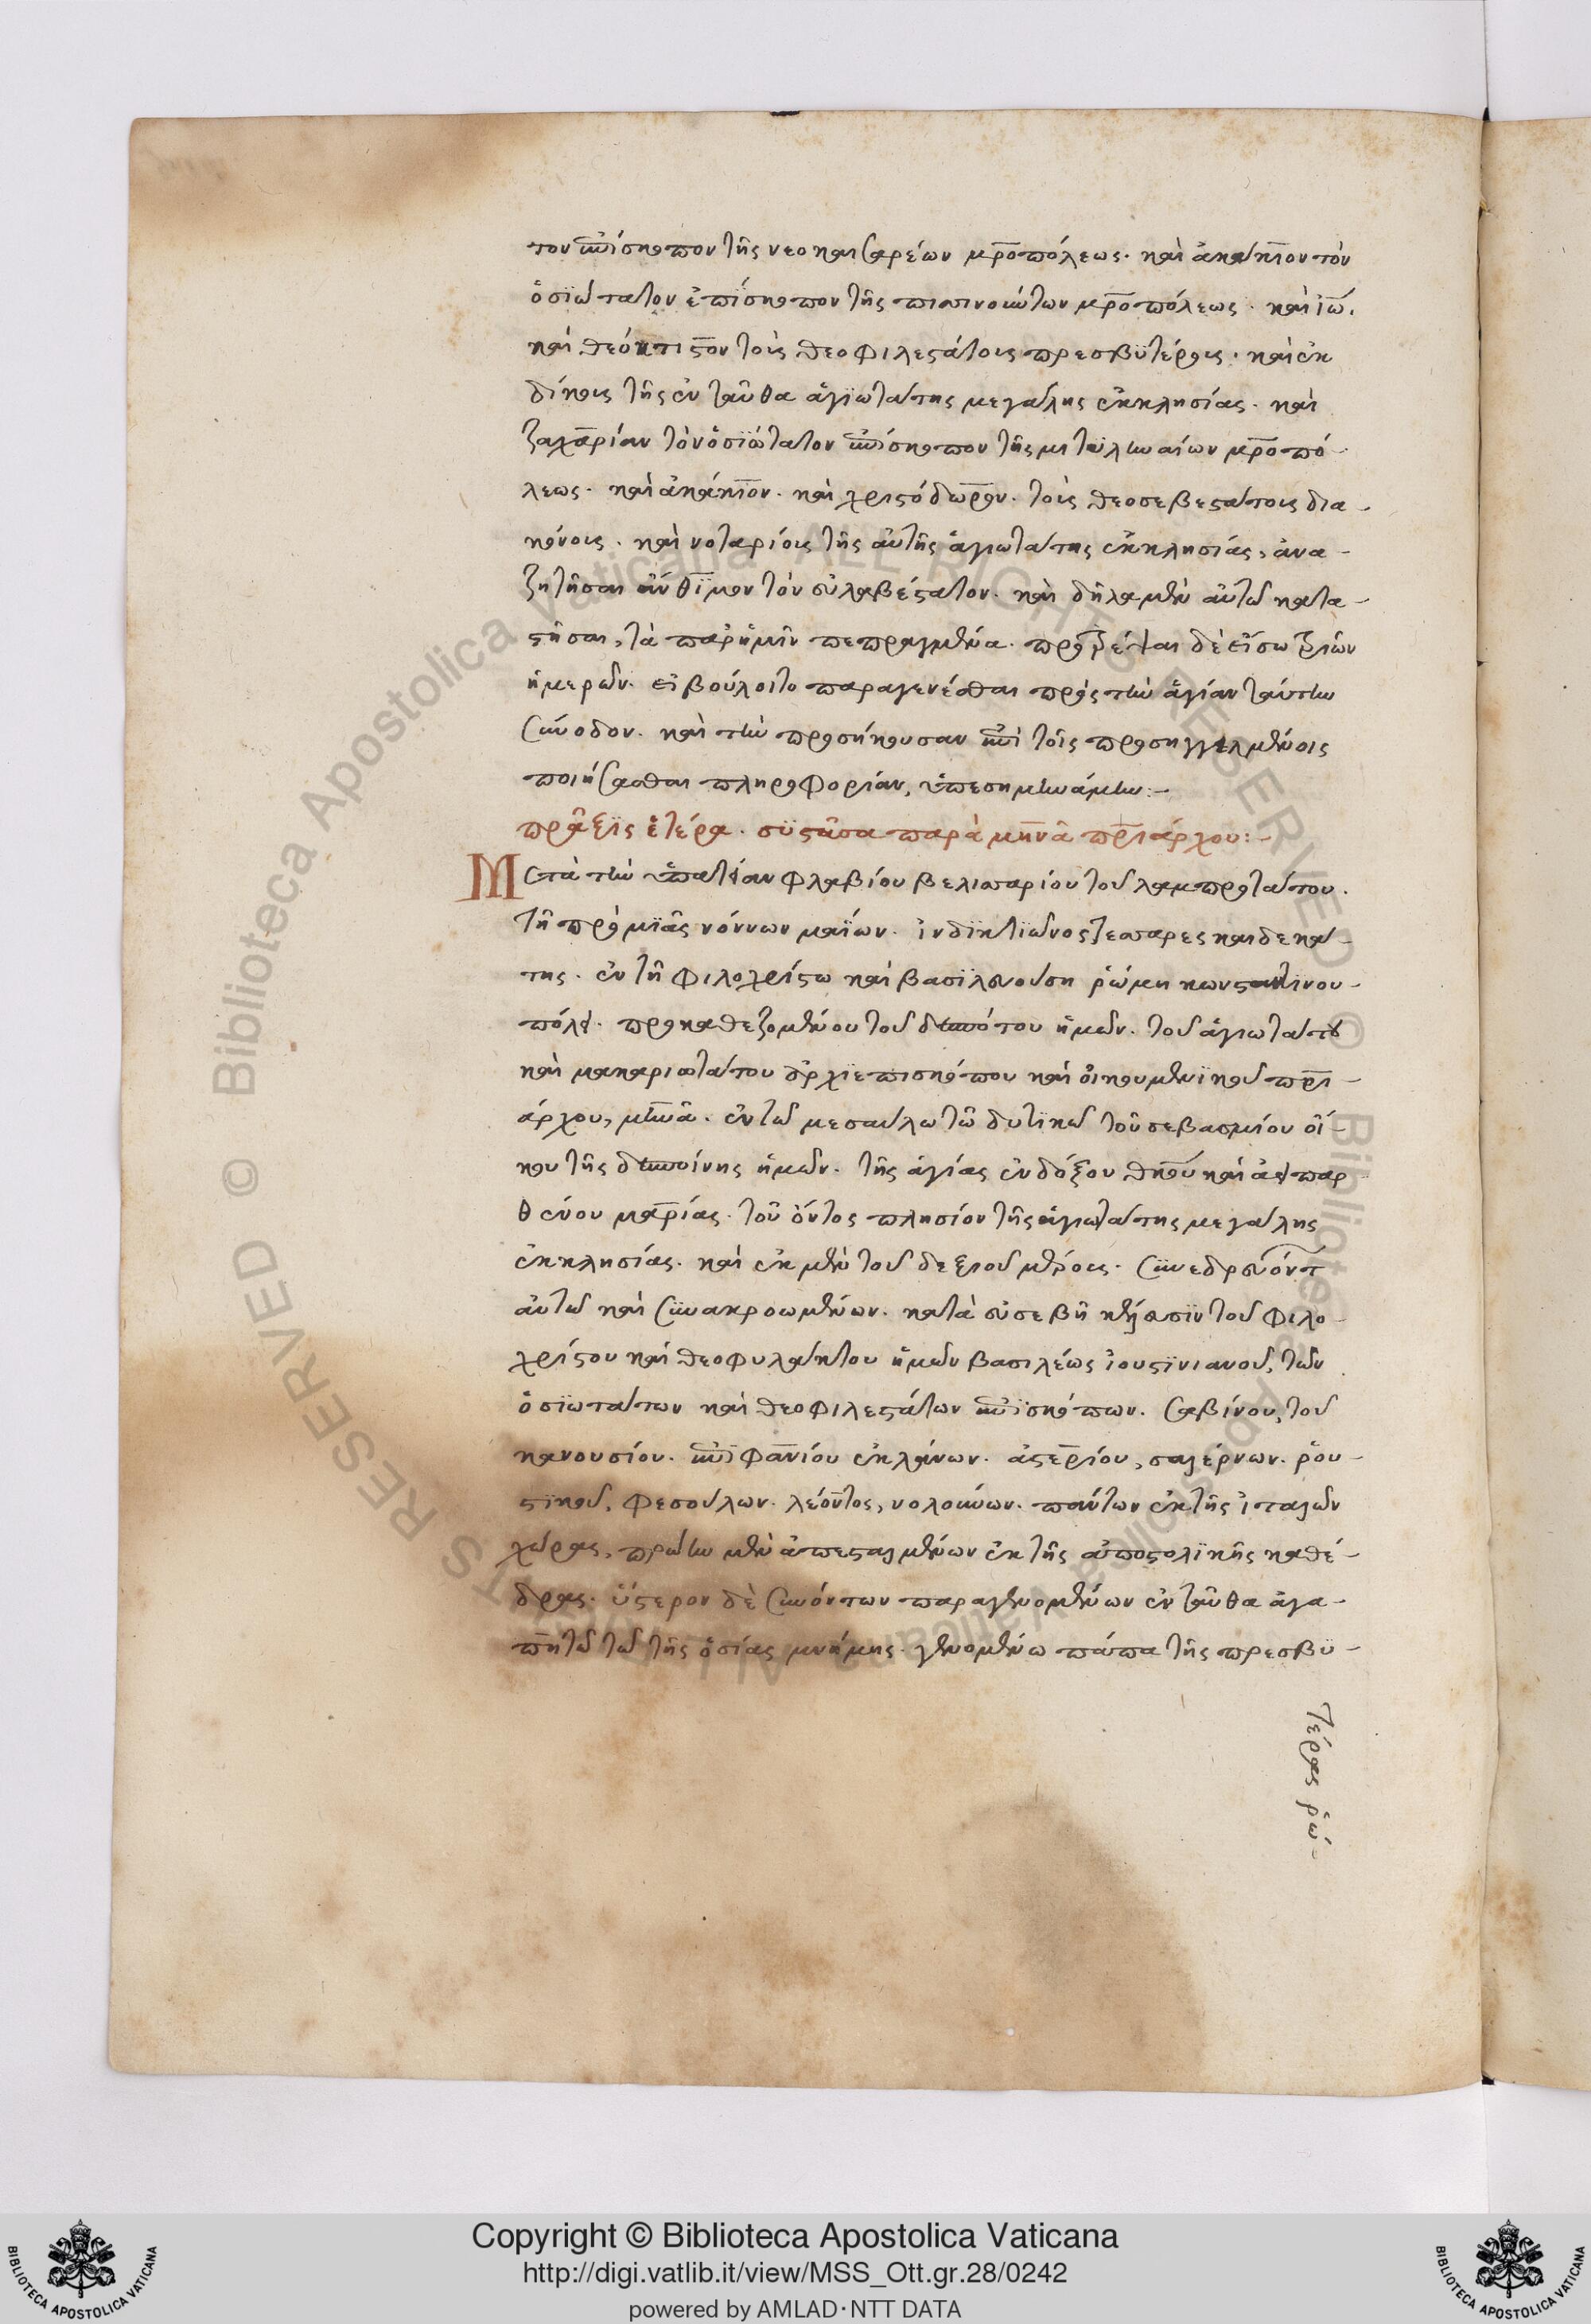 τον ἐπίσκοπον τῆς νεοκαισαρέων μροπόλεως· καὶ ἀκάκιον τὸν
ὁσιώτατον ἐπίσκοπον τῆς πισινούντων μροπόλεως· καὶ ἰω.
καὶ θεόκτιστον τοὺς θεοφιλεστάτους πρεσβυτέρους· καὶ ἐκ
δίκους τῆς ἐνταῦθα ἁγιωτάτης μεγάλης ἐκκλησίας· καὶ
ζαχαρίαν τὸν ὁσιώτατον ἐπίσκοπον τῆς μιτυληναίων μροπό-
λεως· καὶ ἀκάκιον· καὶ χριστόδωρον· τοὺς θεοσεβεστάτους δια-
κόνους· καὶ νοταρίους τῆς αὐτῆς ἁγιωτάτης ἐκκλησίας, ἀνα-
ζητῆσαι ἄνθιμον τὸν εὐλαβέστατον· καὶ δῆλα μὲν αὐτῶ κατα-
στῆσαι, τὰ παρ' ἡμῖν πεπραγμένα· προτρέψαι δὲ εἴσω τριῶν
ἡμερῶν· εἰ βούλοιτο παραγενέσθαι πρὸς τὴν ἁγίαν ταύτην
σύνοδον· καὶ τὴν προσήκουσαν ἐπὶ τοῖς προσηγγελμένοις
ποιήσασθαι πληροφορίαν, ὑπεσημηνάμην:-
πρᾶξις ἑτέρα· συστᾶσα παρὰ μηνᾶ πριάρχου:-
Μετὰ τὴν ὑπατείαν φλαβίου βελισαρίου τοῦ λαμπροτάτου·
τῆ πρὸ μιᾶς νόννων μαΐων· ἰνδικτιῶνος τεσσαρεσκαιδεκά-
της· ἐν τῆ φιλοχρίστω καὶ βασιλευούση ῥώμη κωνσταντινου-
πόλει· προκαθεζομένου τοῦ δεσπότου ἡμῶν· τοῦ ἁγιωτάτου
καὶ μακαριωτάτου ἀρχιεπισκόπου καὶ οἰκουμενικοῦ πρι-
άρχου, μηνᾶ· ἐν τῶ μεσαύλω τῶ δυτικῶ τοῦ σεβασμίου οἴ-
κου τῆς δεσποίνης ἡμῶν· τῆς ἁγίας ἐνδόξου θκου καὶ ἀειπαρ
θένου μαρίας· τοῦ ὄντος πλησίον τῆς ἁγιωτάτης μεγάλης
ἐκκλησίας· καὶ ἐκ μὲν τοῦ δεξιοῦ μέρους· συνεδρευόντ
αὐτῶ καὶ συνακροωμένων· κατὰ εὐσεβῆ κέλευσιν τοῦ φιλο-
χρίστου καὶ θεοφυλάκτου ἡμῶν βασιλέως ἰουστινιανοῦ, τῶν
ὁσιωτάτων καὶ θεοφιλεστάτων ἐπισκόπων· σαβίνου, τοῦ
κανουσίου· ἐπιφανίου ἐκλάνων· ἀστερίου, σαλέρνων· ῥου-
στικοῦ, φεσούλων· λέοντος, νολούνων· πάντων ἐκ τῆς ἰταλῶν
χώρας, πρώην μὲν ἀπεσταλμένων ἐκ τῆς ἀποστολικῆς καθέ-
δρας· ὕστερον δὲ συνόντων παραγενομένων ἐνταῦθα ἀγα-
πητῶ τῶ τῆς ὁσίας μνήμης· γενομένω πάπα τῆς πρεσβυ-
τέρας ῥώ-